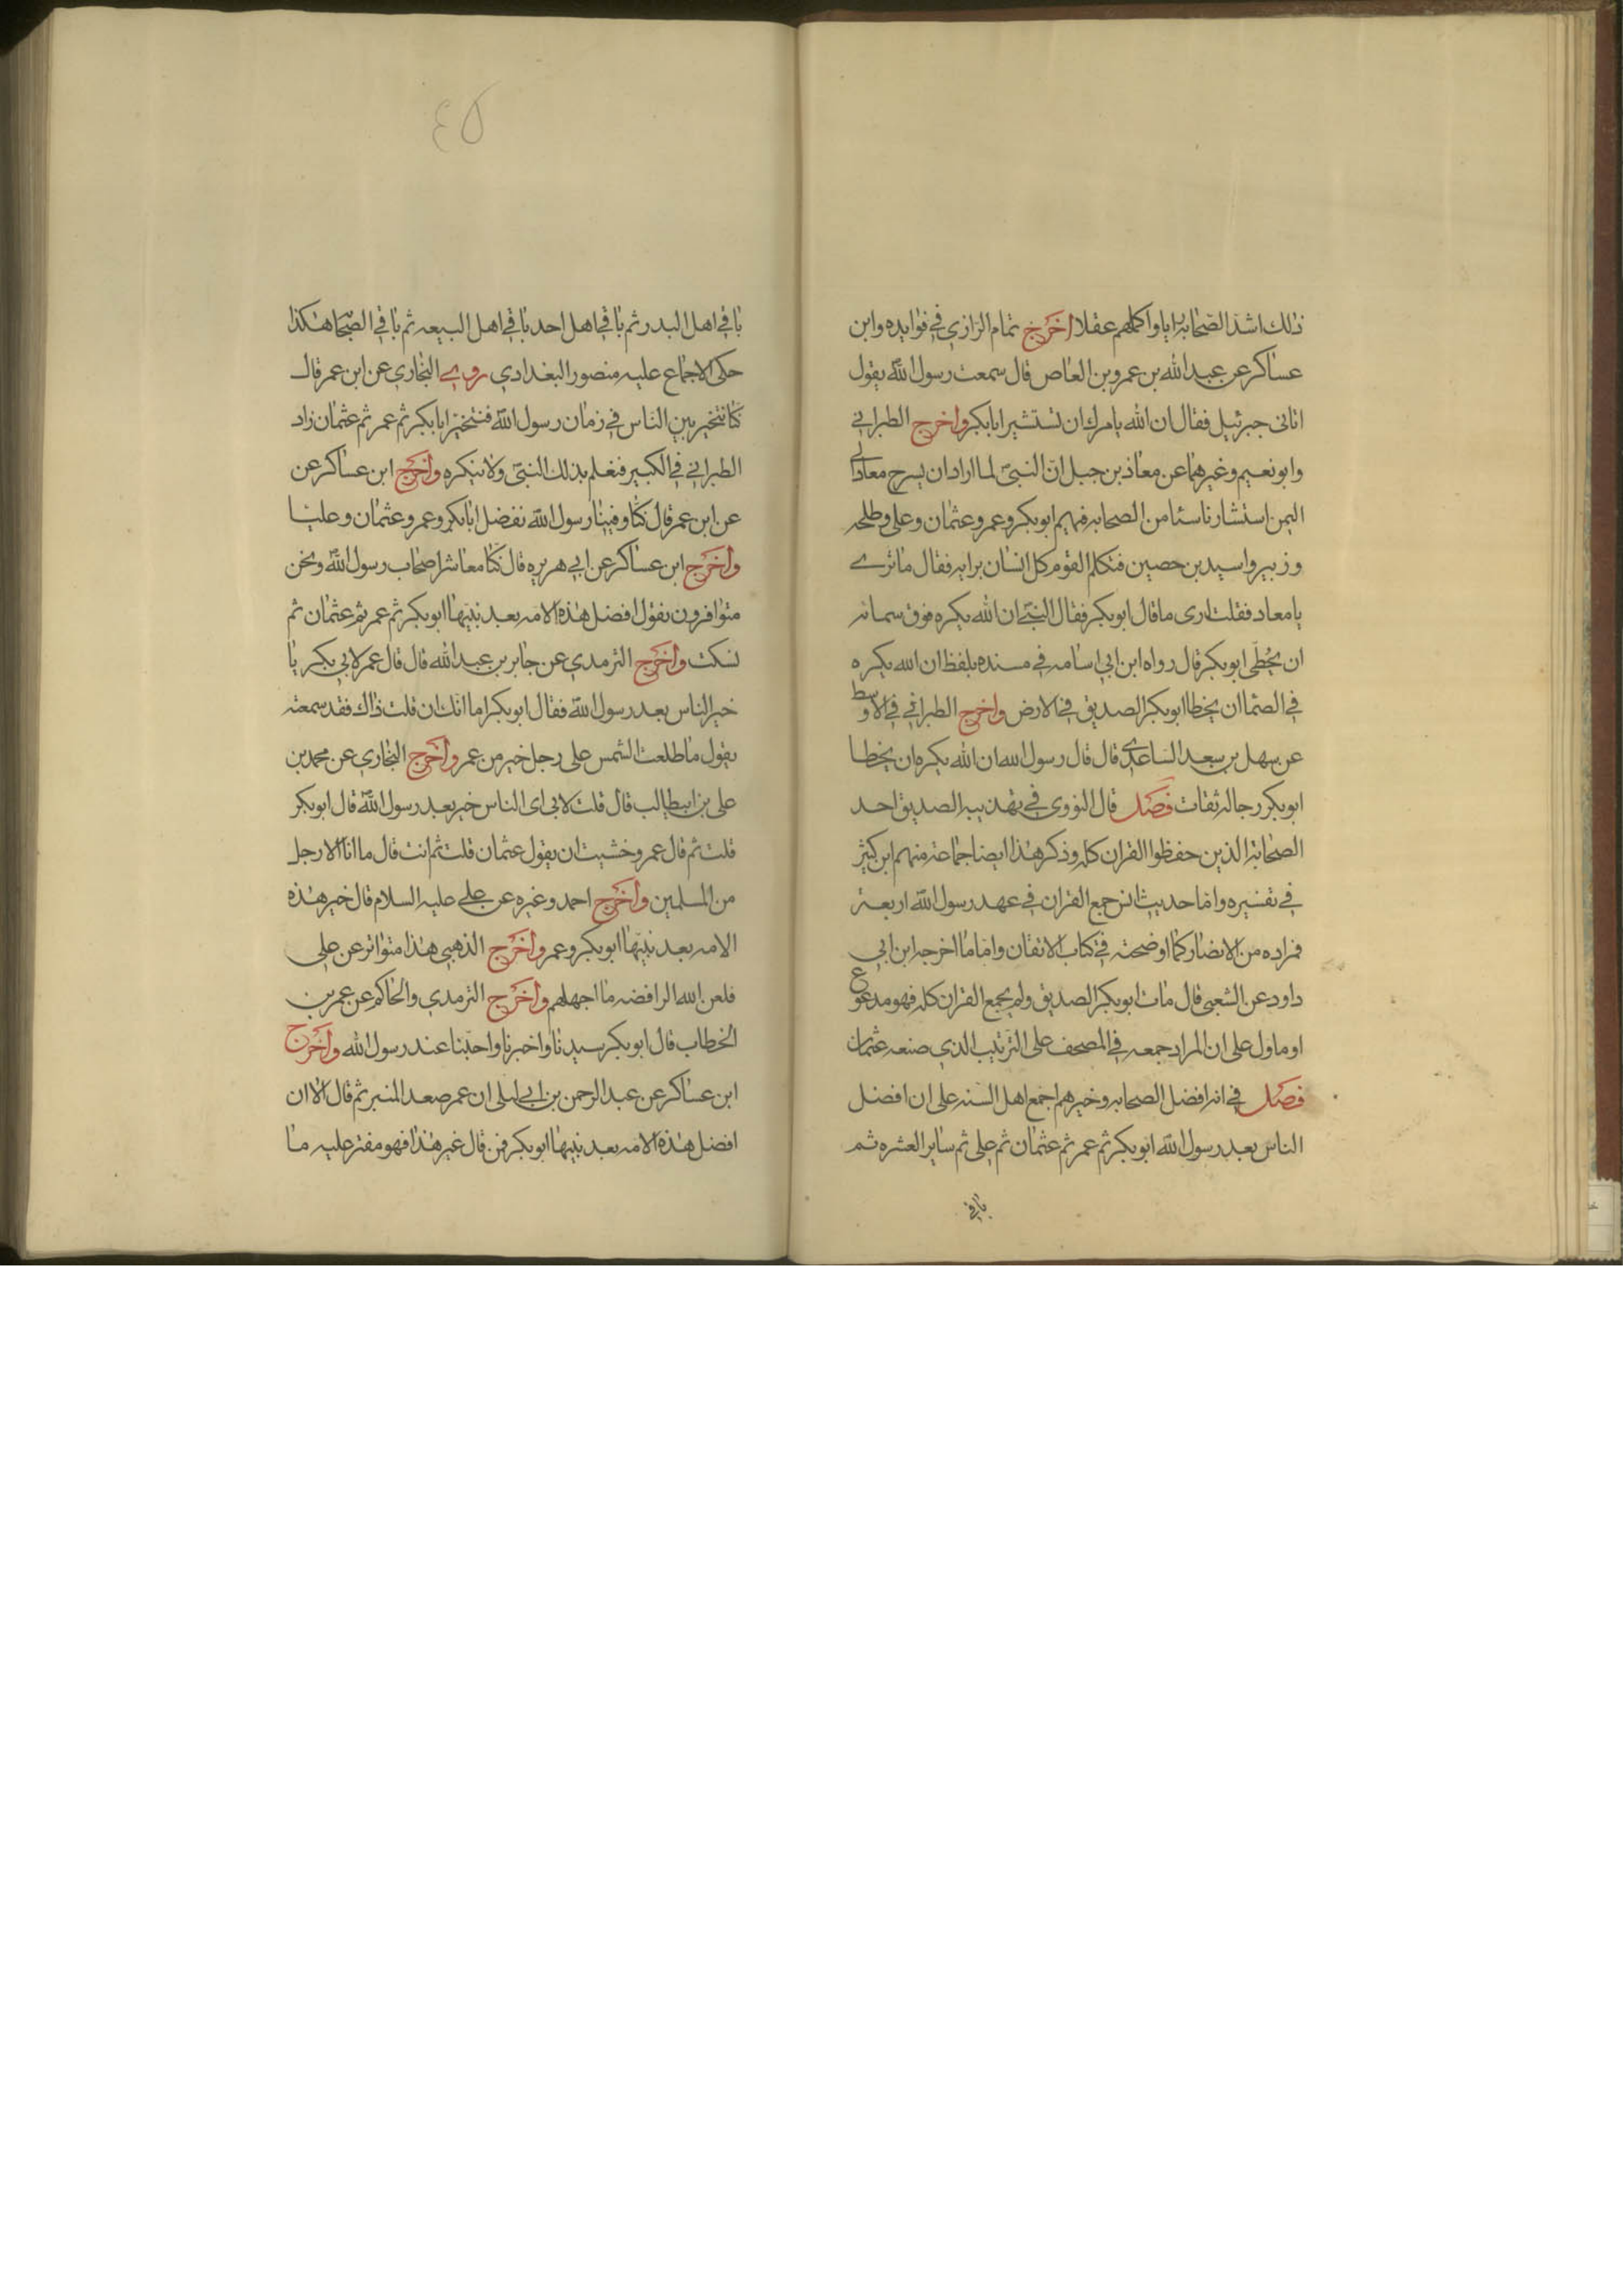 ذلك اشد الصحابه رايا واكملهم عقلا اخرج تمام الرازي في فوايده وابن
عساكر عن عبد الله بن عمرو بن العاص قال سمعت رسول الله يقول
اتانى جبرئيل فقال ان الله يامرك ان تستشير ابا بكر واخرج الطبراني
وابو نعيم وغيرهما عن معاذ بن جبل ان النبي لما اراد ان يسرح معاذا الى
اليمن استشار ناسا من الصحابه فيهم ابو بكر وعمر وعثمان وعلي وطلحه
وزبير واسيد بن حصين فتكلم القوم كل انسان برايه فقال ما ترى
يا معاد فقلت ارى ما قال ابو بكر فقال النبي ان الله يكره فوق سمائه
ان يخطى ابو بكر قال رواه ابن ابي اسامه في مسنده بلفظ ان الله يكره
في السما ان يخطا ابو بكر الصديق في الارض واخرج الطبراني في الاوسط
عن سهل بن سعد الساعدي قال قال رسول الله ان الله يكره ان يخطا
ابو بكر رجاله ثقات فصل قال النووي في تهذيبه الصديق احد
الصحابة الذين حفظوا القران كله وذكر هذا ايضا جماعة منهم ابن كثير
في تفسيره واما حديث انس جمع القران في عهد رسول الله اربعة
فمراده من الانصار كما اوضحته في كتاب الاتقان واما ما اخرجه ابن ابي
داود عن الشعبي قال مات ابو بكر الصديق ولم يجمع القران كله فهو مدفوع
او ماول على ان المراد جمعه في المصحف على الترتيب الذي صنعه عثمان
فصل في انه افضل الصحابه وخيرهم اجمع اهل السنه على ان افضل
الناس بعد رسول الله ابو بكر ثم عمر ثم عثمان ثم علي ثم ساير العشره ثم
باقي
٤٥
باقي اهل البدر ثم باقي اهل احد باقي اهل البيعه ثم باقي الصحابه هكذا
حكى الاجماع عليه منصور البغدادي روى البخاري عن ابن عمر قال
كنا نتخير بين الناس في زمان رسول الله فنتخير ابا بكر ثم عمر ثم عثمان زاد
الطبراني في الكبير فنعلم بذلك النبي ولا ينكره واخرج ابن عساكر عن
عن ابن عمر قال كنا وفينا رسول الله نفضل ابا بكر وعمر وعثمان وعليا
واخرج ابن عساكر عن ابي هريره قال كنا معاشر اصحاب رسول الله ونحن
متوافرون نقول افضل هذه الامه بعد نبيها ابو بكر ثم عمر ثم عثمان ثم
نسكت واخرج الترمدي عن جابر بن عبد الله قال قال عمر لابي بكر يا
خير الناس بعد رسول الله فقال ابو بكر اما انك ان قلت ذاك فقد سمعته
يقول ما طلعت الشمس على رجل خير من عمر واخرج البخاري عن محمد بن
علي بن ابيطالب قال قلت لابى اى الناس خير بعد رسول الله قال ابو بكر
قلت ثم قال عمر وخشيت ان يقول عثمان قلت ثم انت قال ما انا الا رجل
من المسلمين واخرج احمد وغيره عن علي عليه السلام قال خير هذه
الامه بعد نبيها ابو بكر وعمر واخرج الذهبي هذا متواتر عن علي
فلعن الله الرافضه ما اجهلهم واخرج الترمدي والحاكم عن عمر بن
الخطاب قال ابو بكر سيدنا واخيرنا واحبنا عند رسول الله واخرج
ابن عساكر عن عبد الرحمن بن ابي ليلى ان عمر صعد المنبر ثم قال الا ان
افضل هذه الامه بعد نبيها ابو بكر فمن قال غير هذا فهو مفتر عليه ما